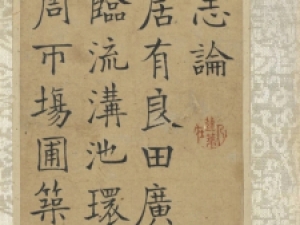 志論
居有良田廣
臨流溝池環
周帀塲圃築